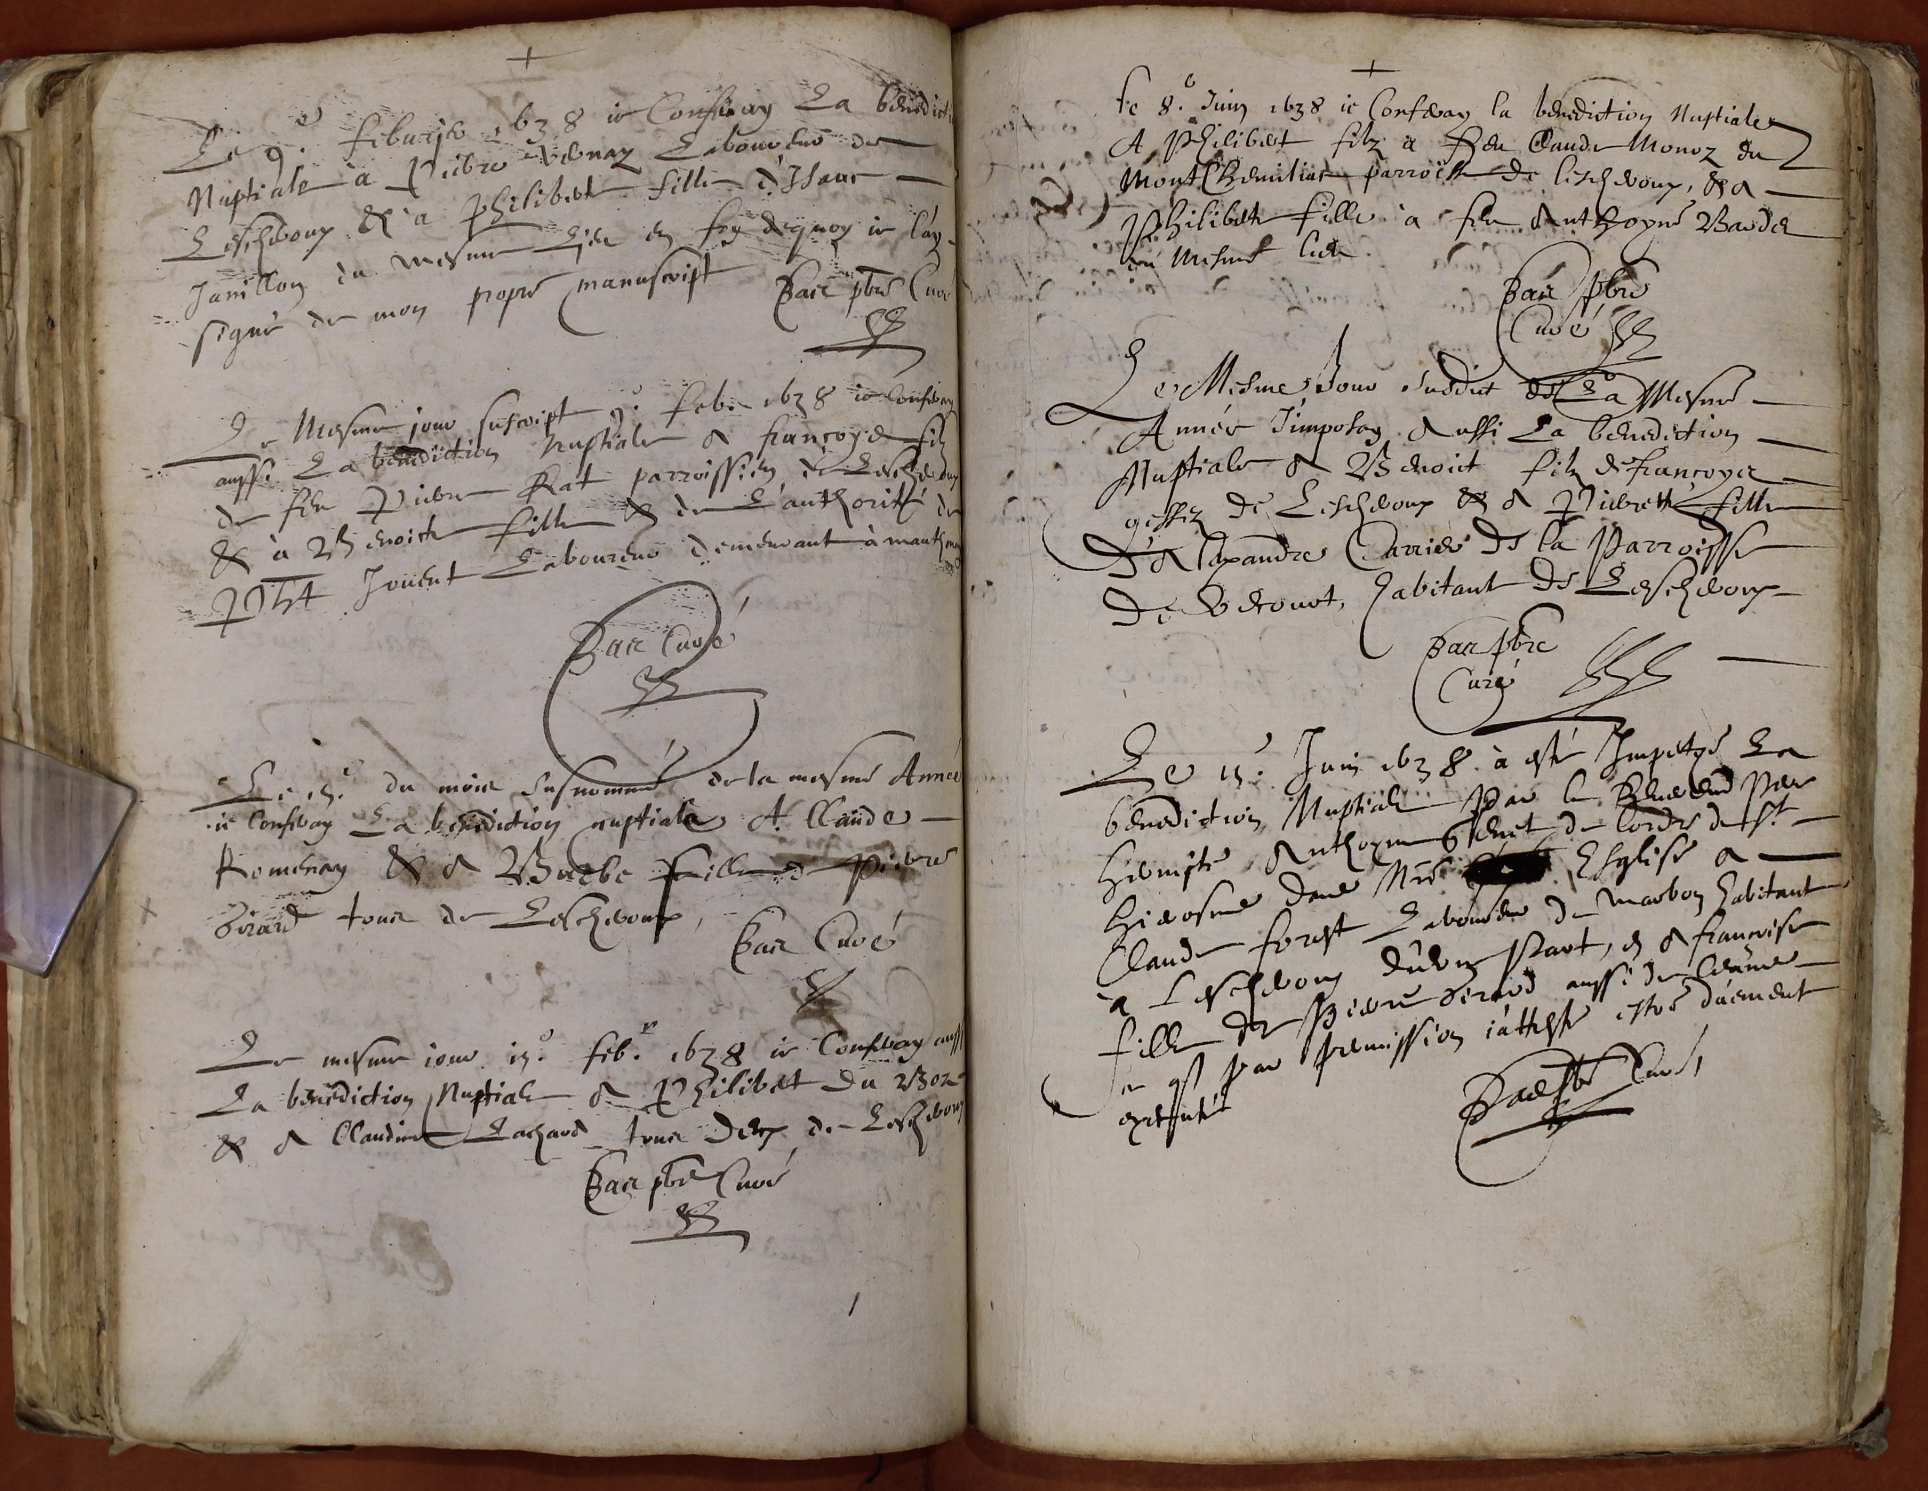 Le 9.e febvrier 1638 ie Conferay La benedicti
Nuptiale à Pierre Vernay Laboureur de
Lescheroux & à Philiberte fille d'Isaac
Janillon du mesme Lieu en foy dequoy ie l'ay
signé de mon propre manuscript Barr pbre Curé
Le Mesme jour suscript 9.e feb. 1638 ie Conferay
aussi La benediction Nuptiale A françoys filz
de feu Pierre Rat parroissien de Lescheroux
& à Benoite fille & de L'authorité de
Phbt Jouent Laboureur demeurant à
Barr Curé
Le 15.e du mois susnommé de la mesme Année
ie Conferay La benediction nuptiale A Claude
Romenay & A Barbe fille de Pierre
Girard tous de Lescheroux,
Barr Curé
Le mesme iour 15.e feb.r 1638 ie Conferay aussi
La benediction Nuptiale A Philibert du
& A Claudine Lachard tous deux de Lescheroux
Barr pbre Curé
Le 8.e Juin 1638 ie Conferay la benediction Nuptiale
A Philibert filz a feu Claude Monoz de
parroisse de lescheroux, & A
Philiberte fille à feu Anthoyne Bardet
du Mesme lieu.
Barr pbre
Curé
Le Mesme Jour susdict de La Mesme
Année J'imposay Aussi La benediction
Nuptiale A Benoict filz de françoys
de Lescheroux & A Pierrette fille
D'Alexandre Carrier de la Parroisse
De habitant de Lescheroux
Barr pbre
Curé
Le 15.e Juin 1638 à esté La
benediction Nuptiale Par le Reverend Pere
Hermite Anthoyne de lordre de St
Hierosme dans Nre Esglise A
Claude forest Laboureur de Marboz habitant
a Lescheroux d'une Part, & A françoise
fille de Pierre Girard aussi de
par permission i'atteste estre duement
executé
Barr pbre Curé